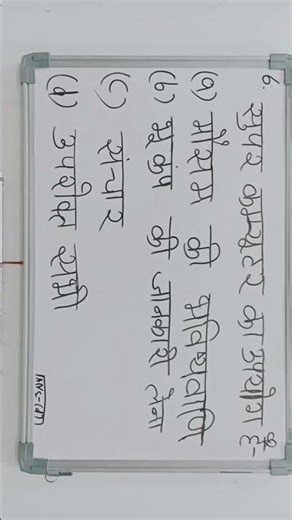 6. सुपर कम्प्युटर का उपयोग है-
(a) मौसम की भविष्यवाणि
(b) भूकंप की जानकारी लेना
(c) संचार
(d) उपरोक्त सभी
ANS-(d)